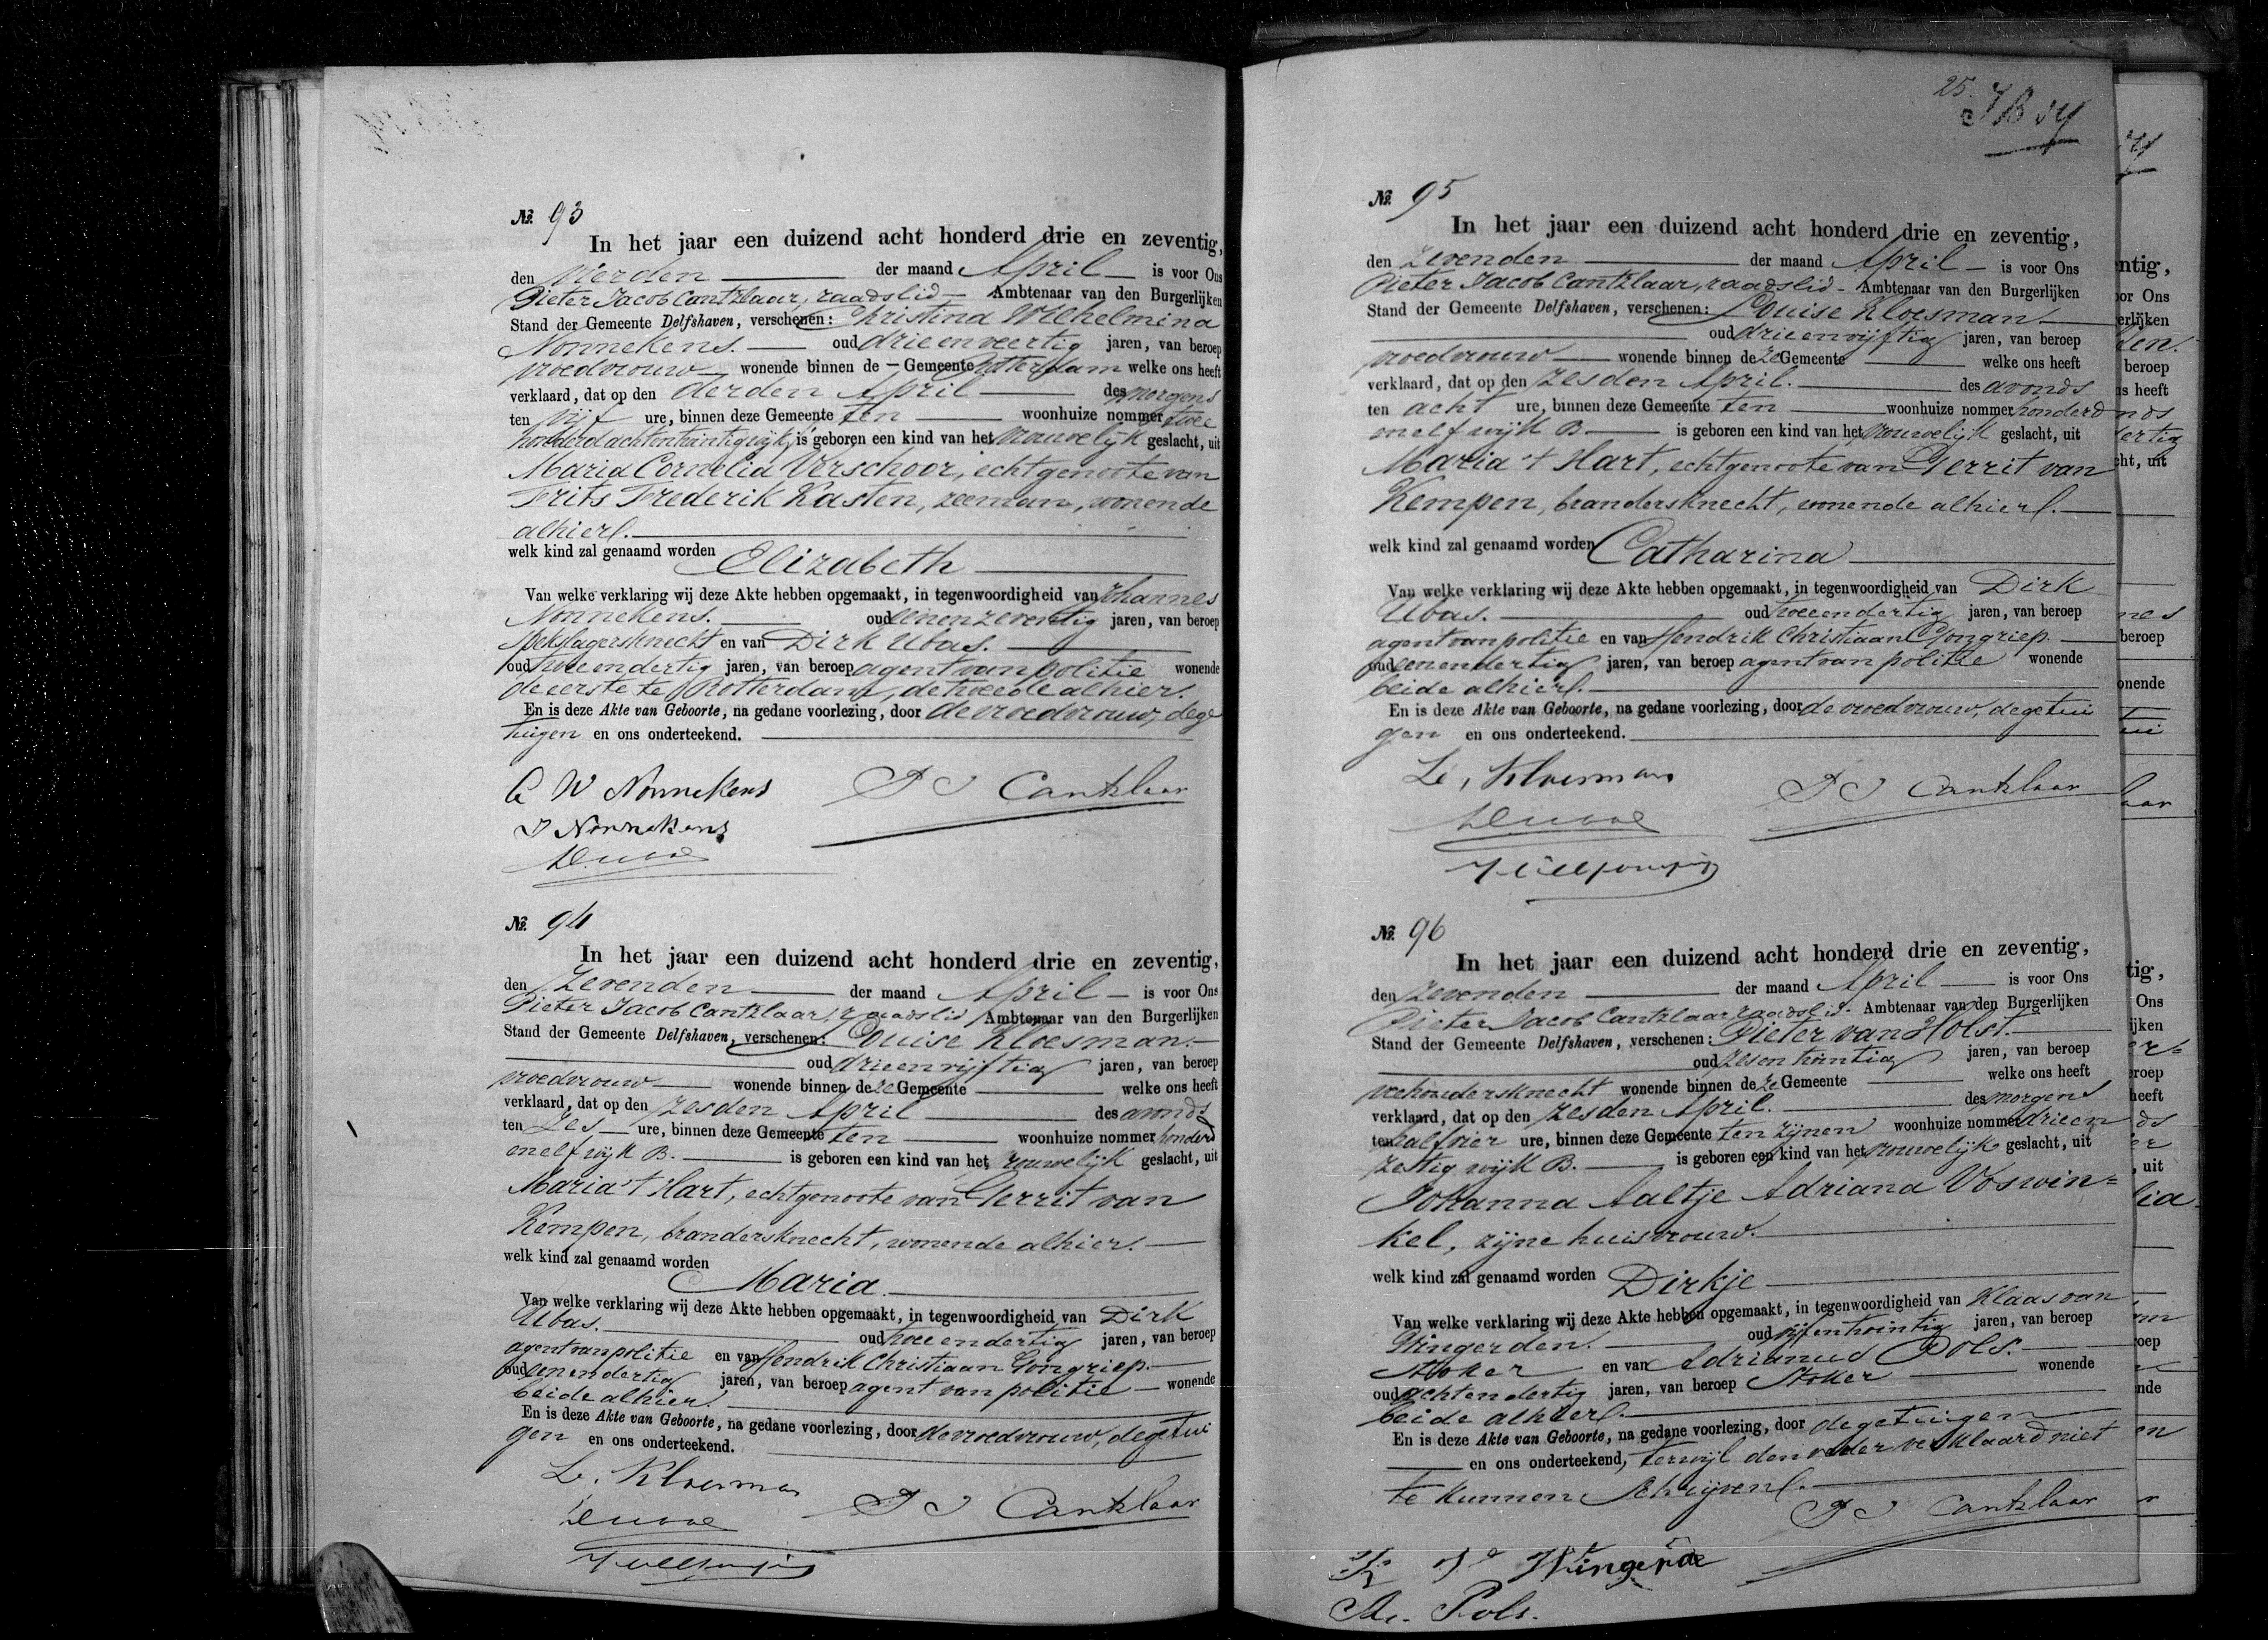 № 93
In het jaar een duizend acht honderd drie en zeventig,
den vierden der maand April is voor Ons
Pieter Jacob Cantzlaar, raadslid Ambtenaar van den Burgerlijken
Stand der Gemeente Delfshaven, verschenen: Christina Wilhelmina
Nonnekens. oud drieenveertig jaren, van beroep
vroedvrouw wonende binnen de Gemeente Rotterdam welke ons heeft
verklaard, dat op den derden April des morgens
ten vijf ure, binnen deze Gemeente ten woonhuize nommer twee
honderdachtentwintig wijk is geboren een kind van het vrouwelijk geslacht, uit
Maria Cornelia Verschoor, echtgenoote van
Frits Frederik Kasten, zeeman, wonende
alhier.
welk kind zal genaamd worden Elizabeth
Van welke verklaring wij deze Akte hebben opgemaakt, in tegenwoordigheid van Johannes
Nonnekens. oud eenenzeventig jaren, van beroep
spekslagersknecht en van Dirk Ubas.
oud tweeendertig jaren, van beroep agent van politie wonende
de eerste te Rotterdam, de tweede alhier.
En is deze Akte van Geboorte, na gedane voorlezing, door de vroedvrouw, de ge
tuigen en ons onderteekend.
C W Nonnekens P J Cantzlaar
J Nonnekens
№ 94
In het jaar een duizend acht honderd drie en zeventig,
den zevenden der maand April is voor Ons
Pieter Jacob Cantzlaar, raadslid Ambtenaar van den Burgerlijken
Stand der Gemeente Delfshaven, verschenen: Louise Kloesman.
oud drieenvijftig jaren, van beroep
vroedvrouw wonende binnen deze Gemeente welke ons heeft
verklaard, dat op den zesden April des avonds
ten zes ure, binnen deze Gemeente ten woonhuize nommer honderd
en elf wijk B. is geboren een kind van het vrouwelijk geslacht, uit
Maria 't Hart, echtgenoote van Gerrit van
Kempen, brandersknecht, wonende alhier.
welk kind zal genaamd worden
Maria.
Van welke verklaring wij deze Akte hebben opgemaakt, in tegenwoordigheid van Dirk
Ubas. oud tweeendertig jaren, van beroep
agent van politie en van Hendrik Christiaan Gongriep.
oud eenendertig jaren, van beroep agent van politie wonende
beide alhier.
En is deze Akte van Geboorte, na gedane voorlezing, door de vroedvrouw, de getui
gen en ons onderteekend.
L. Kloesman
P J Cantzlaar
25.
№ 95
In het jaar een duizend acht honderd drie en zeventig,
den zevenden der maand April is voor Ons
Pieter Jacob Cantzlaar, raadslid Ambtenaar van den Burgerlijken
Stand der Gemeente Delfshaven, verschenen: Louise Kloesman
oud drieenvijftig jaren, van beroep
vroedvrouw wonende binnen deze Gemeente welke ons heeft
verklaard, dat op den zesden April. des avonds
ten acht ure, binnen deze Gemeente ten woonhuize nommer honderd
en elf wijk B is geboren een kind van het vrouwelijk geslacht, uit
Maria 't Hart, echtgenoote van Gerrit van
Kempen, brandersknecht, wonende alhier.
welk kind zal genaamd worden Catharina
Van welke verklaring wij deze Akte hebben opgemaakt, in tegenwoordigheid van Dirk
Ubas. oud tweeendertig jaren, van beroep
agent van politie en van Hendrik Christiaan Gongriep.
oud eenendertig jaren, van beroep agent van politie wonende
beide alhier.
En is deze Akte van Geboorte, na gedane voorlezing, door de vroedvrouw, de getui
gen en ons onderteekend.
L. Kloesman
P J Cantzlaar
№ 96
In het jaar een duizend acht honderd drie en zeventig,
den zevenden der maand April is voor Ons
Pieter Jacob Cantzlaar raadslid Ambtenaar van den Burgerlijken
Stand der Gemeente Delfshaven, verschenen: Pieter van Holst.
oud zesentwintig jaren, van beroep
veehoudersknecht wonende binnen deze Gemeente welke ons heeft
verklaard, dat op den zesden April. des morgens
ten half vier ure, binnen deze Gemeente ten zijnen woonhuize nommer drieen
zestig wijk B. is geboren een kind van het vrouwelijk geslacht, uit
Johanna Aaltje Adriana Voswin=
kel, zijne huisvrouw.
welk kind zal genaamd worden Dirkje
Van welke verklaring wij deze Akte hebben opgemaakt, in tegenwoordigheid van Klaas van
Wingerden. oud vijfentwintig jaren, van beroep
Stoker en van Adrianus Pols.
oud achtendertig jaren, van beroep Stoker wonende
beide alhier.
En is deze Akte van Geboorte, na gedane voorlezing, door de getuigen
en ons onderteekend, terwijl den vader verklaard niet
te kunnen schrijven.
P J Cantzlaar
Wingerde
A. Pols.